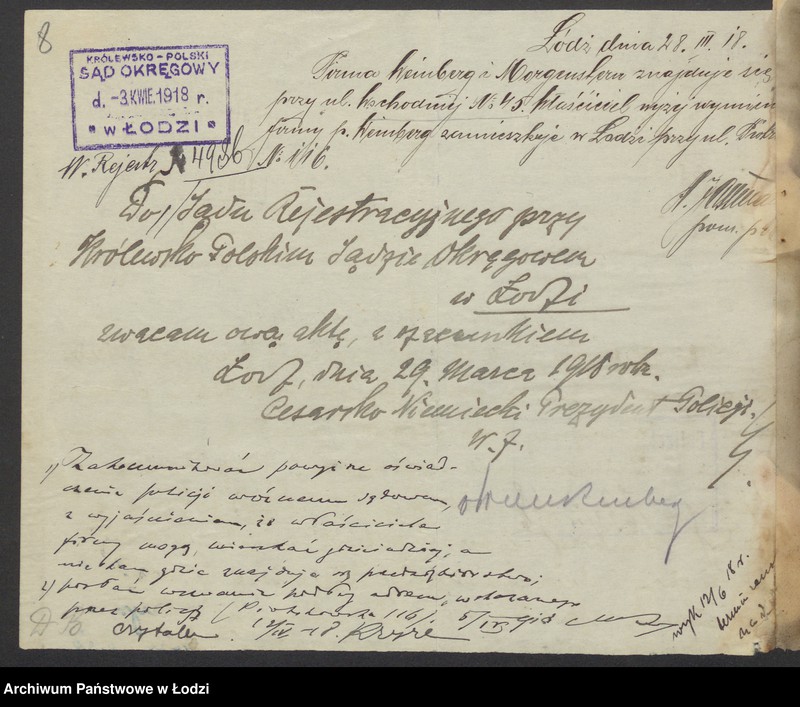 8
KRÓLEWSKO-POLSKI
SĄD OKRĘGOWY
d. -3. KWIE. 1918 r.
w ŁODZI
Łódź dnia 28. III. 18.
Firma Weinberg i Morgenstern znajduje się
przy ul. Wschodniej № 45. Właściciel wyżej wymien
firmy p. Weinberg zamieszkuje w Łodzi przy ul. Piotr
№ 116.
W. Rejestr № 4936
pom.
Do Sądu Rejestracyjnego przy
Królewsko Polskim Sądzie Okręgowem
w Łodzi
zwacam ową aktę, z szacunkiem
Łodź, dnia 29. Marca 1918 rok.
Cesarsko Niemiecki Prezydent Policji.
W. Z.
1) Zakomunikować powyższe oświad-
czenie policji woźnemu sądowem,
z wyjaśnieniem, że właściciele
firmy mogą mieszkać gdzieindziej, a
nie tam gdzie znajduje się przedsiębiorstwo;
2) posłać wezwanie podług adresu, wskazanego
przez policję (Piotrkowska 116). 5/IV 918
Czytałem. 12/IV-18.
wysł. 12/6 18 r.
Archiwum Państwowe w Łodzi